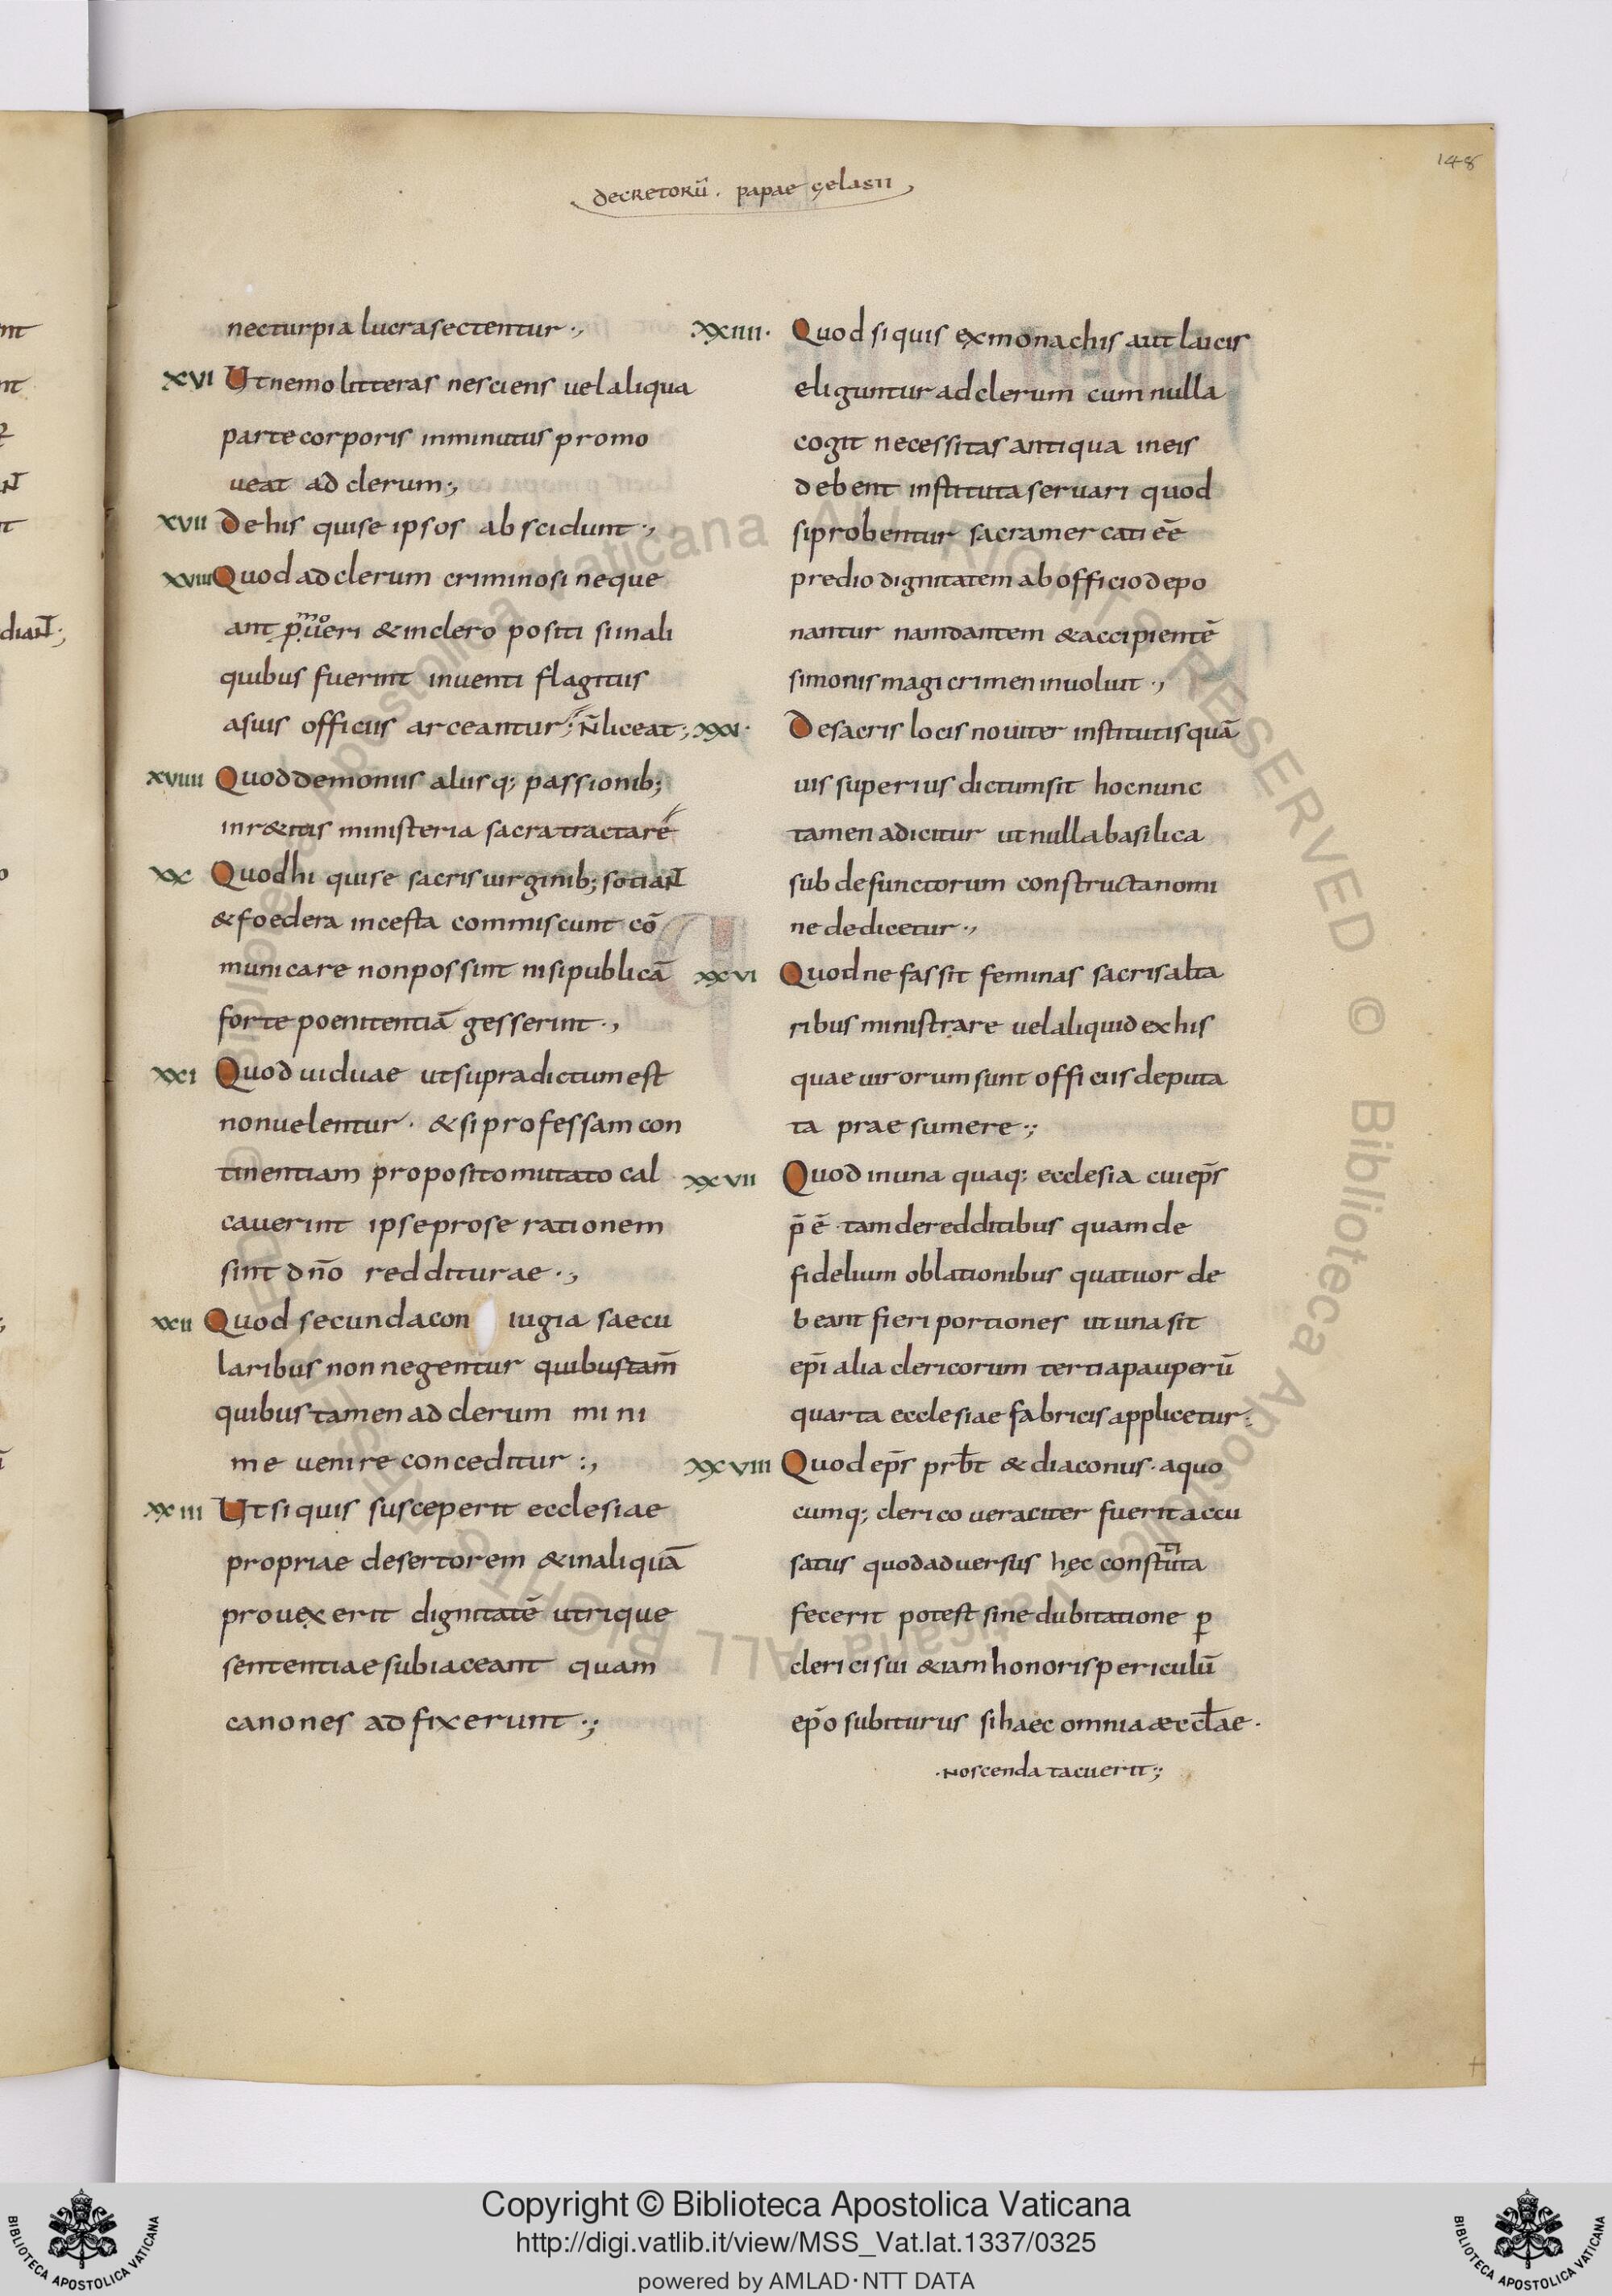 148
decretorū. papae gelasii
nec turpia lucra sectentur .,
XVI Ut nemo litteras nesciens vel aliqua
parte corporis inminutus promo
ueat ad clerum;,
XVII De his qui se ipsos abscidunt .,
XVIII Quod ad clerum criminosi neque
ant
& in clero positi si in ali
quibus fuerint inuenti flagitiis
a suis officiis arceantur; n̄ liceat;,
XVIIII Quod demoniis aliisq; passionib;
inr&itis ministeria sacra tractare
XX Quod hi qui se sacris uirginib; sociaNT
& foedera incesta commiscunt cō
municare non possint nisi publicā
forte poenitentiā gesserint .,
XXI Quod uiduae ut supradictum est
non uelentur . & si professam con
tinentiam proposito mutato cal
cauerint ipse pro se rationem
sint dn̄o redditurae .,
XXII Quod secunda con iugia saecu
laribus non negentur quibus tam̄
quibus tamen ad clerum mi ni
me uenire conceditur :,
XXIII Ut si quis susceperit ecclesiae
propriae desertorem & in aliquā
prouexerit dignitatē utrique
sententiae subiaceant quam
canones adfixerunt .;
XXIIII. Quod si quis ex monachis aut laicis
eliguntur ad clerum cum nulla
cogit necessitas antiqua in eis
debent instituta seruari quod
si probentur sacra mercati eē
predio dignitatem ab officio depo
nantur nam dantem & accipientē
simonis magi crimen inuoluit .,
XXV. De sacris locis nouiter institutis quā
uis superius dictum sit hoc nunc
tamen adicitur ut nulla basilica
sub defunctorum constructa nomi
ne dedicetur .,
XXVI Quod nefas sit feminas sacris alta
ribus ministrare uel aliquid ex his
quae uirorum sunt officiis deputa
ta praesumere .;
XXVII Quod in una quaq; ecclesia cui ep̄s
p̄ē tam de redditibus quam de
fidelium oblationibus quatuor de
beant fieri portiones ut una sit
ep̄i alia clericorum tertia pauperū
quarta ecclesiae fabricis applicetur.
XXVIII Quod ep̄s prb̄t & diaconus . a quo
cumq; clerico ueraciter fuerit accu
satus quod aduersus hęc constituta
fecerit potest sine dubitatione p̄
clerici sui &iam honoris periculū
ep̄o subiturus si haec omnia æccl̄ae .
.Noscenda tacuerit;,
Copyright © Biblioteca Apostolica Vaticana
http://digi.vatlib.it/view/MSS_Vat.lat.1337/0325
powered by AMLAD·NTT DATA
BIBLIOTECA APOSTOLICA VATICANA
BIBLIOTECA APOSTOLICA VATICANA
© Biblioteca Apostolica Vaticana ALL RIGHTS RESERVED © Biblioteca Apostolica Vaticana ALL RIGHTS RESERVED